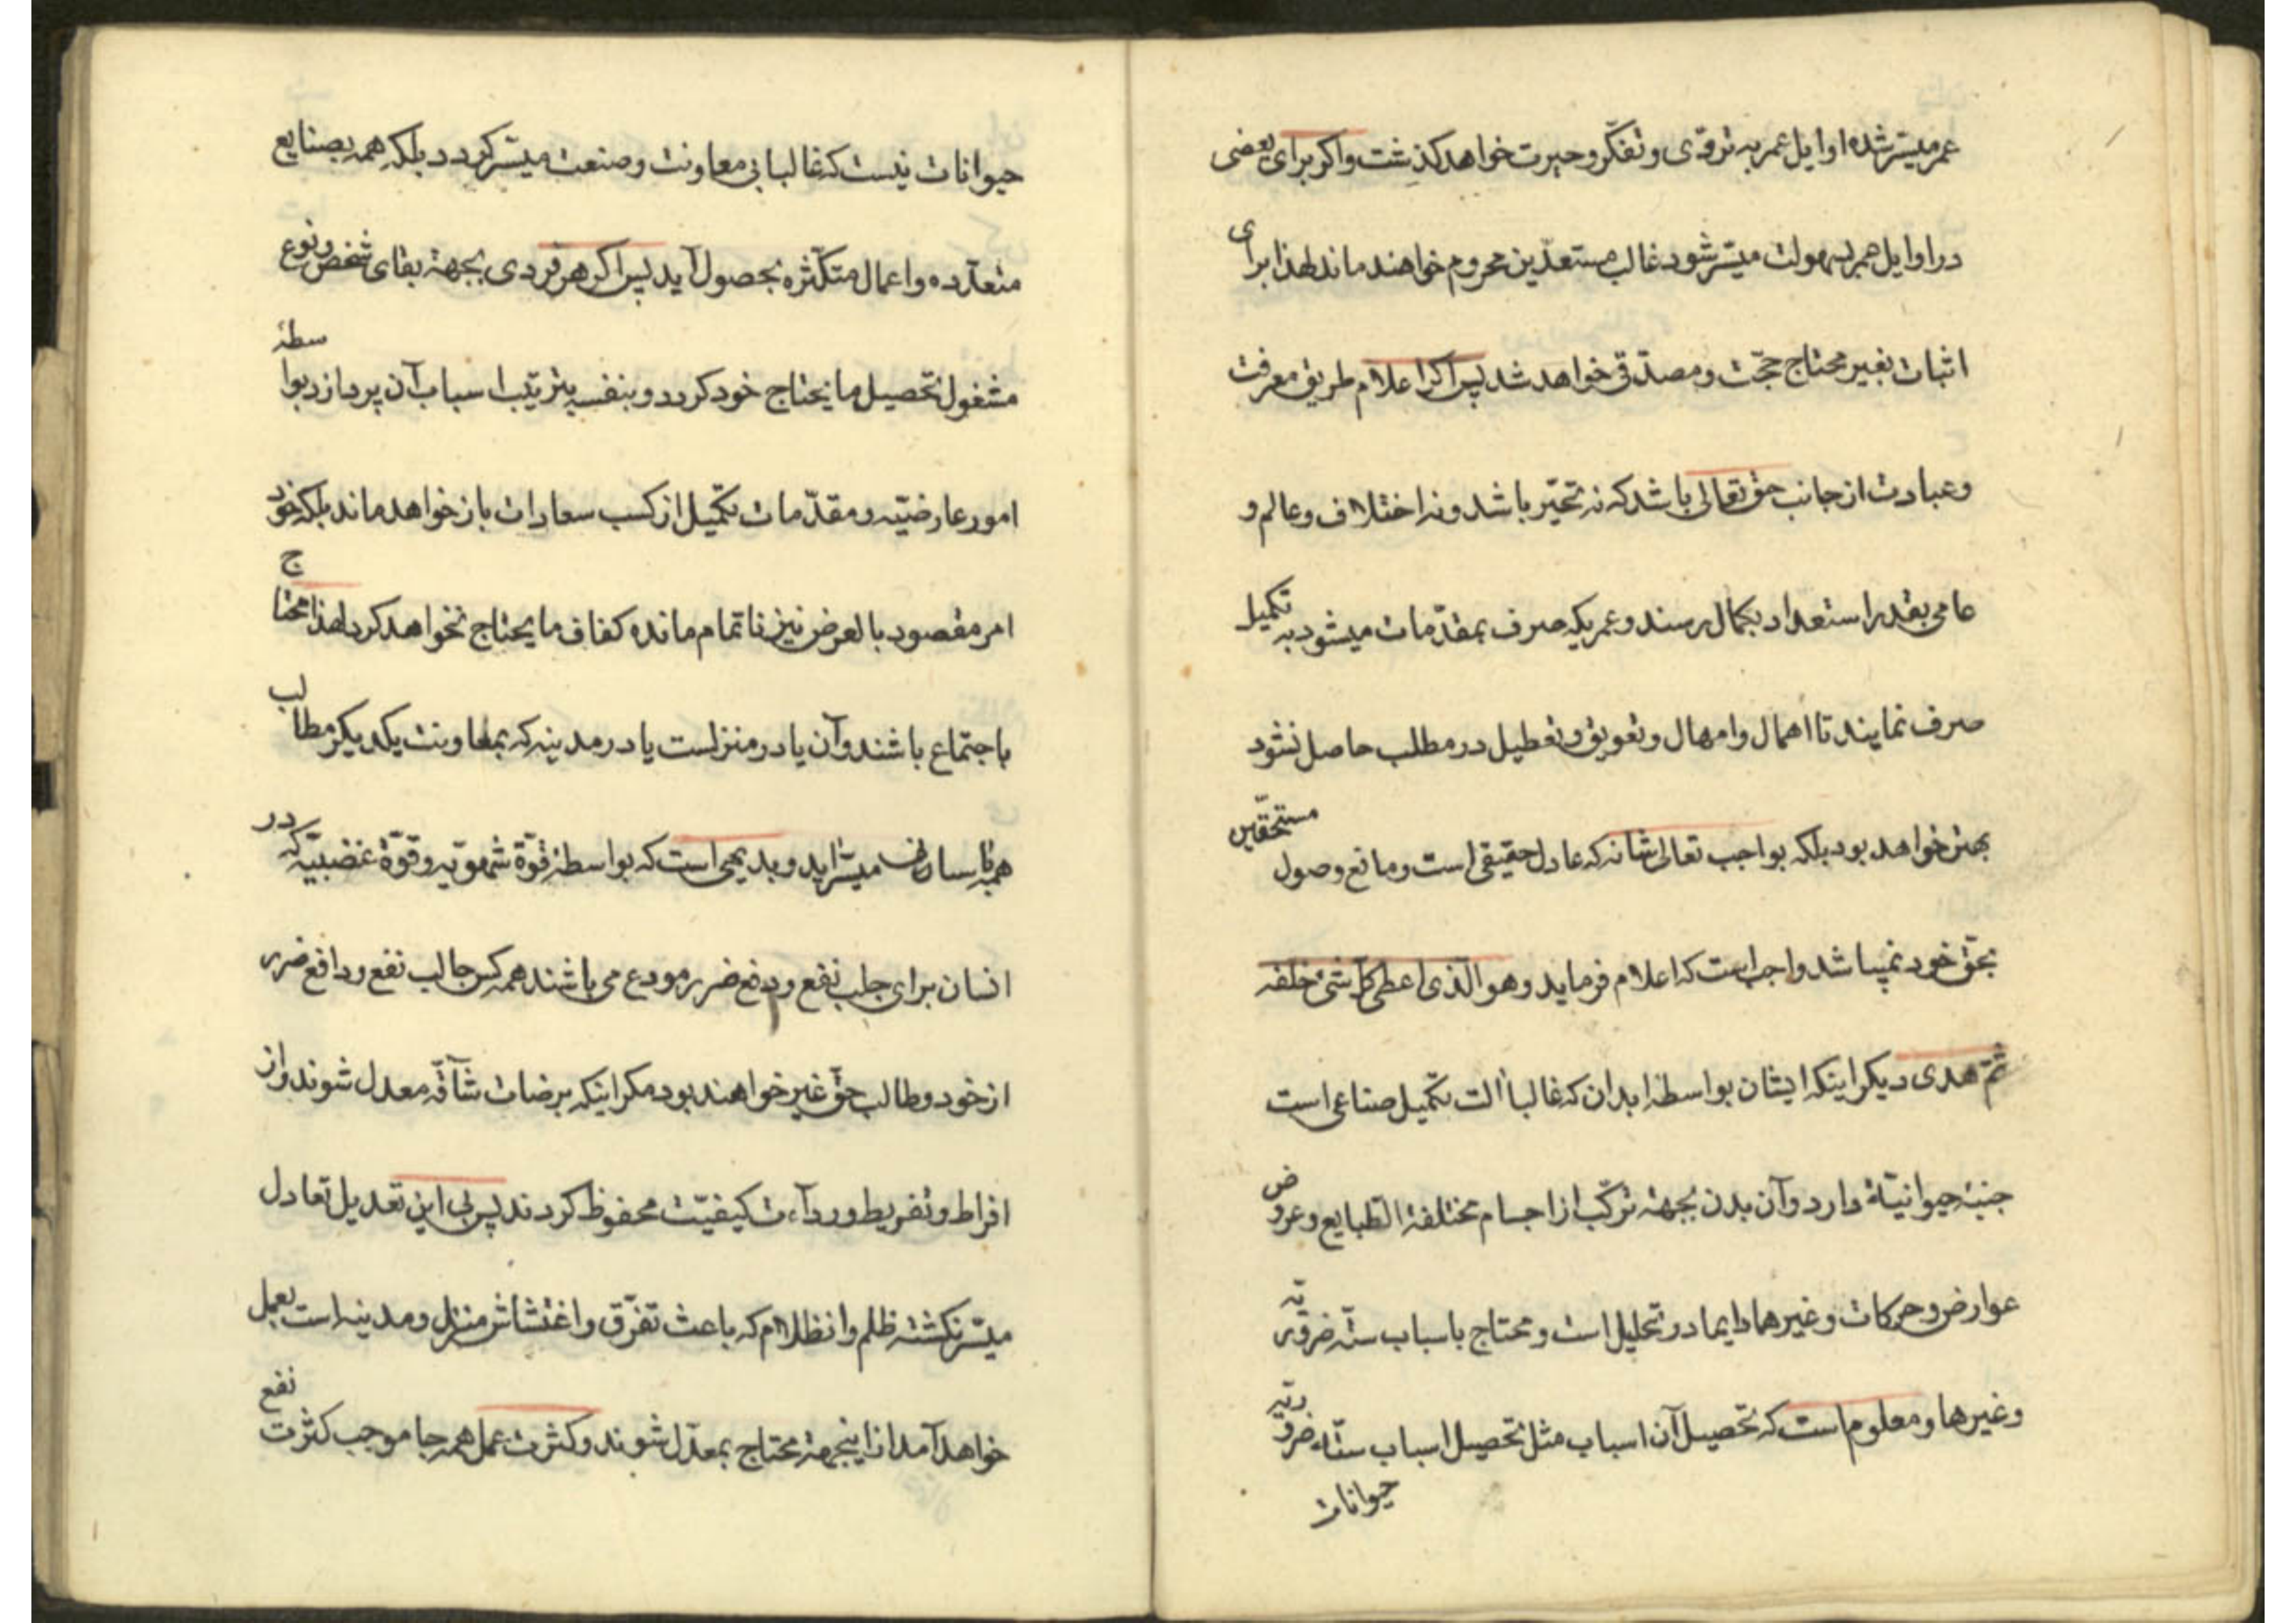 عمر میسّر شده اوایل عمر به ترقّی و تفکّر و حیرت خواهد کذشت واکر برای بعضی
در اوایل عمر بسهولت میسّر شود غالب مستعدّین محروم خواهند ماند لهذا برای
اثبات بغیر محتاج حجّت و مصدّقی خواهد شد پس اکر اعلام طریق معرفت
وعبادت از جانب حقّ تعالی باشد که نه تحیّر باشد و نه اختلاف و عالم و
عامی بقدر استعداد بکمال رسند و عمریکه صرف بمقدّمات میشود به تکمیل
صرف نمایند تا اهمال و امهال و تعویق و تعطیل در مطلب حاصل نشود
بهتر خواهد بود بلکه بواجب تعالی شانه که عادل حقیقی است و مانع وصول مستحقّین
بحقّ خود نمیباشد واجب است که اعلام فرماید وهو الّذی اعطی کلّ شیء خلقه
ثمّ هدی دیکر اینکه ایشان بواسطهٔ ابدان که غالباً آلت تکمیل صناعی است
جنبهٔ حیوانیّة دارد و آن بدن بجهة ترکّب از اجسام مختلفة الطّبایع و عروض
عوارض و حرکات و غیرها دایما در تحلیل است و محتاج باسباب ستّه ضروریّه
وغیرها و معلوم است که تحصیل آن اسباب مثل تحصیل اسباب ستّه ضروریّه
حیوانات
حیوانات نیست که غالبا بی معاونت و صنعت میسّر کردد بلکه همه بصنایع
متعدّده و اعمال متکثّره بحصول آید پس اکر هر فردی بجهة بقای شخص و نوع
مشغول تحصیل ما یحتاج خود کردد و بنفسه بترتیب اسباب آن پردازد بواسطهٔ
امور عارضیّه و مقدّمات تکمیل از کسب سعادات باز خواهد ماند بلکه خود
امر مقصود بالعرض نیز ناتمام مانده کفاف ما یحتاج نخواهد کرد لهذا محتاج
باجتماع باشند و آن یا در منزلست یا در مدینه که بمعاونت یکدیکر مطالب
همه بآسانی میسّر آید و بدیهی است که بواسطهٔ قوّة شهویّه و قوّة غضبیّه که در
انسان برای جلب نفع و دفع ضرر مودع می باشند همه کس جالب نفع و دافع ضرر
از خود و طالب حقّ غیر خواهند بود مکر اینکه بریاضات شاقّه معدل شوند و از
افراط و تفریط و ردآءت کیفیّت محفوظ کردند پس بی این تعدیل تعادل
میسّر نکشته ظلم و انظلام که باعث تفرّق و اغتشاش منزل و مدینه است بعمل
خواهد آمد از اینجهة محتاج بمعدّل شوند و کثرت عمل همه جا موجب کثرت نفع